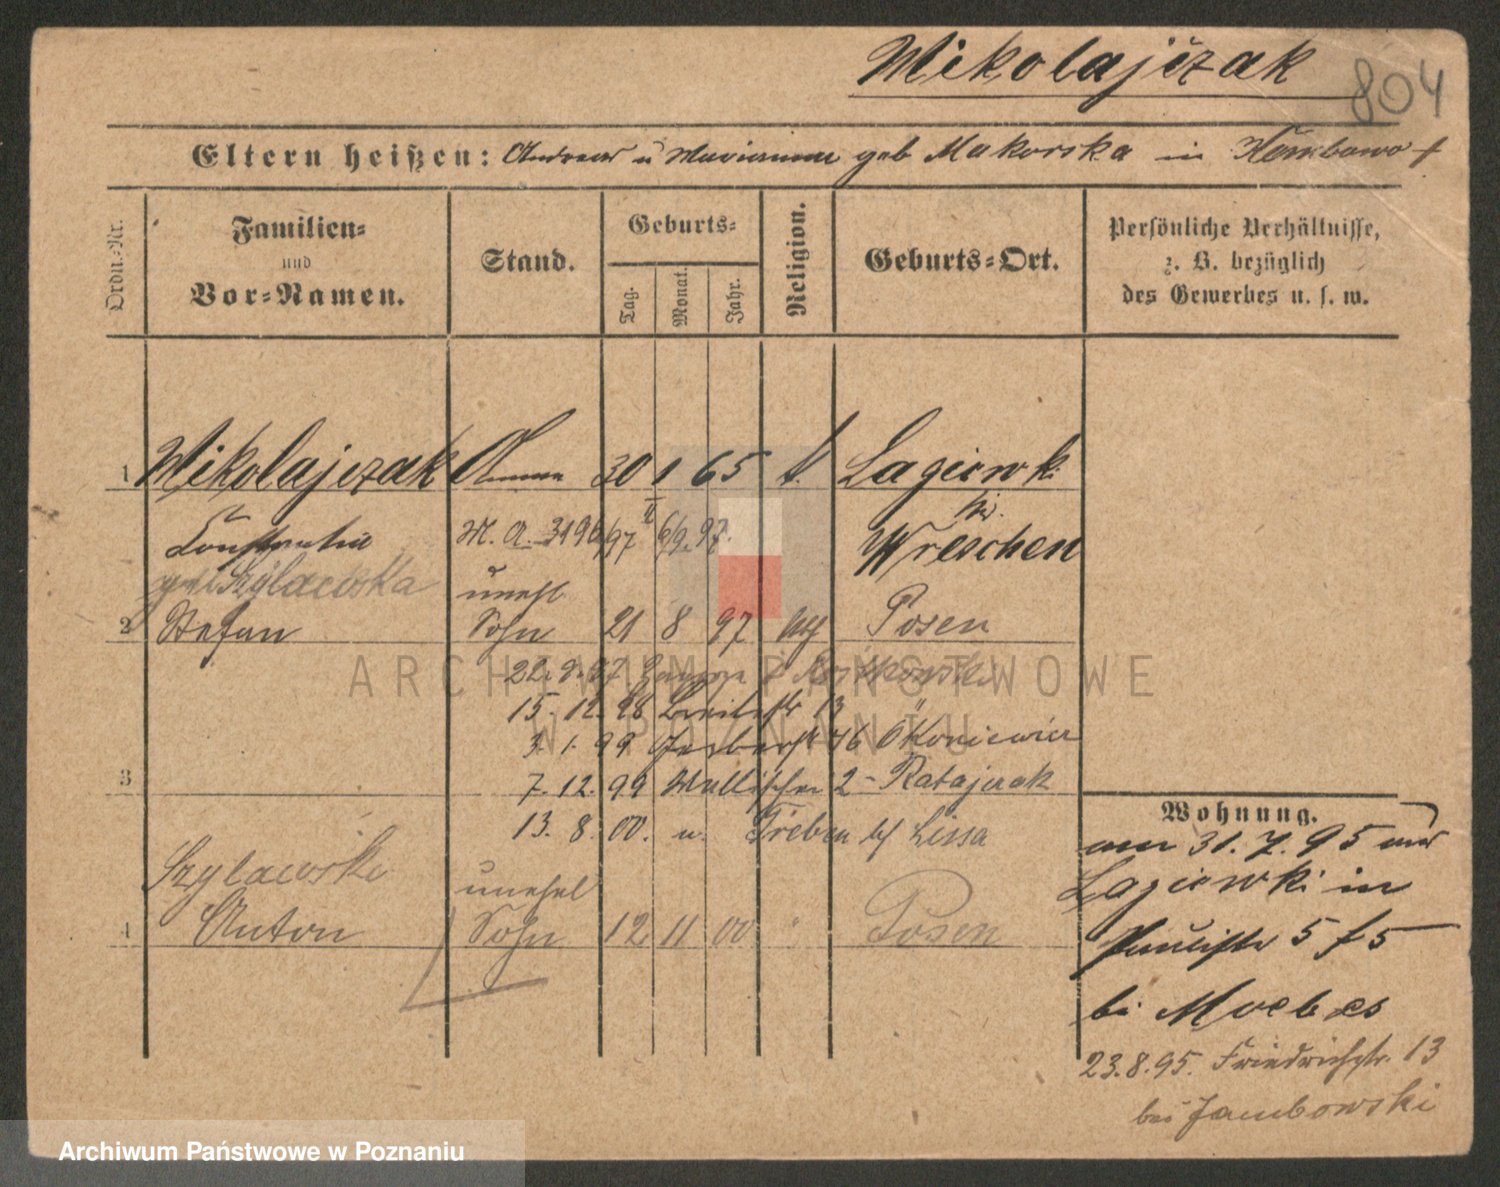 Mikolajczak 804
Eltern heißen: Andreas u Marianne geb Makorska in
Ordn.-Nr.
Familien-
und
Vor-Namen.
Stand.
Geburts-
Tag.
Monat.
Jahr.
Religion.
Geburts-Ort.
Persönliche Verhältnisse,
z. B. bezüglich
des Gewerbes u. s. w.
1 Mikolajczak Amme 30 1 65 k. Lagiewk
bei
Constantia M. A. 3196/97 6/9. 97. Wreschen
geb Szylawska unehl
2 Stefan Sohn 21 8 97 Posen
22. 9. 97
15. 12. 98 Breitestr 13
3. 1. 99. Gerberstr 46
3 7. 12. 99 Wallischei 2 - Ratajczak
13. 8. 00. n. Treben b/ Lissa
Szylawski unehel
4 Anton Sohn 12 11 00 " Posen
Wohnung.
am 31. 7. 95 aus
Lagiewki in
Paulistr 5 f 5
bei Moebes
23. 8. 95. Friedrichstr. 13
bei Jambowski
ARCHIWUM PAŃSTWOWE
W POZNANIU
Archiwum Państwowe w Poznaniu